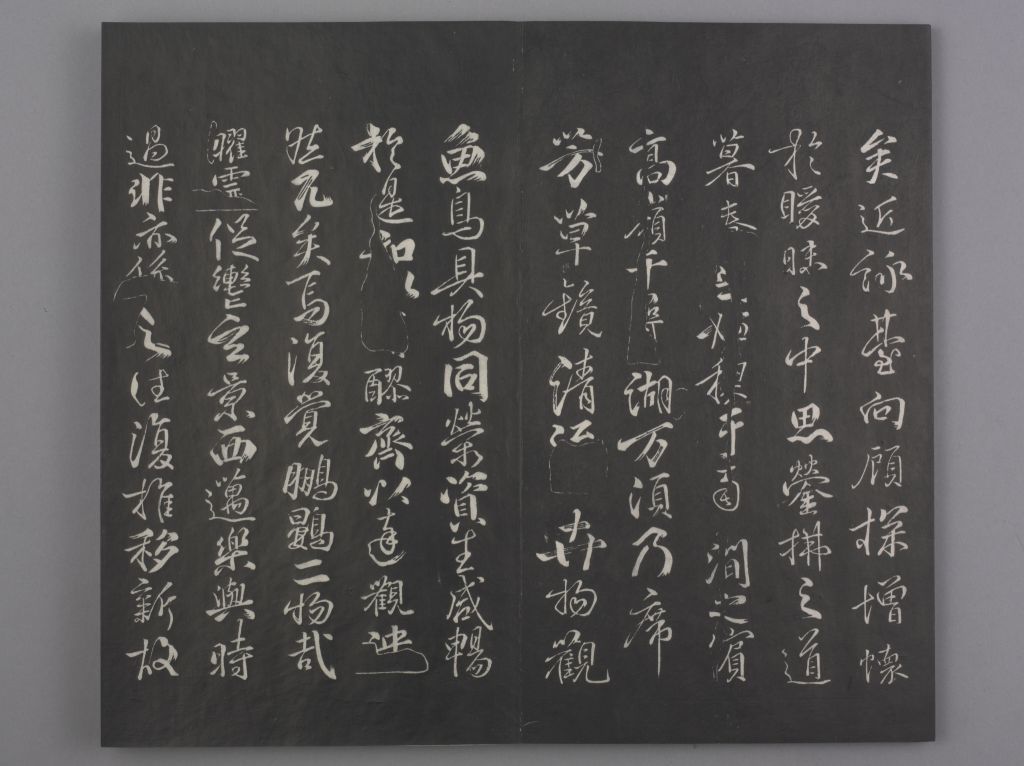 矣近詠臺向顧探增懷
於曖昧之中思鎣拂之道
暮春南澗之濱
高嶺千尋湖万頃乃席
芳草鏡清卉物觀
魚鳥具物同榮資生咸暢
於是和以醪齊以達觀泱
然兀矣焉復覺鵬鷃二物哉
曜靈促轡急景西邁樂與時
過悲亦係之往復推移新故